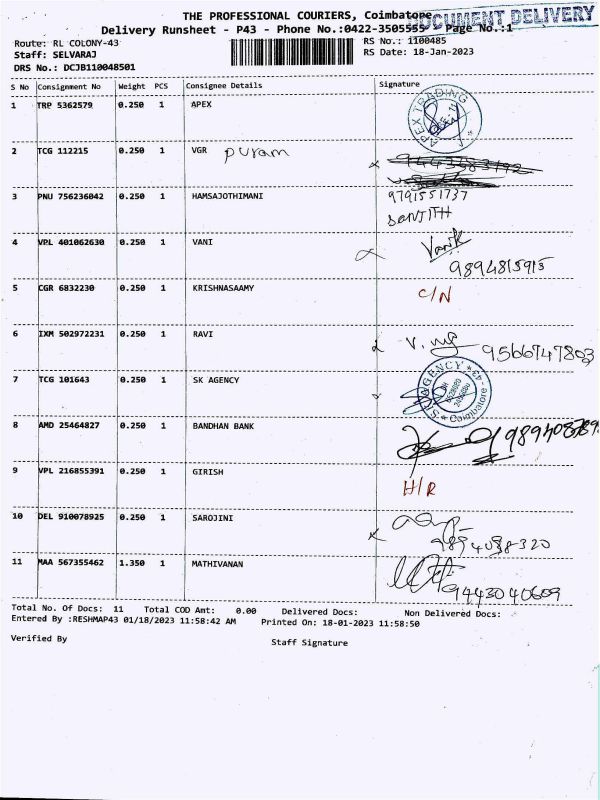 THE PROFESSIONAL COURIERS, Coimbatore
DOCUMENT DELIVERY
Delivery Runsheet - P43 - Phone No.:0422-3505555 Page No.:1
Route: RL COLONY-43 RS No.: 1100485
Staff: SELVARAJ RS Date: 18-Jan-2023
DRS No.: DCJB110048501
S No Consignment No Weight PCS Consignee Details Signature
1 TRP 5362579 0.250 1 APEX APEX TRADING
2 TCG 112215 0.250 1 VGR puram
3 PNU 756236042 0.250 1 HAMSAJOTHIMANI 9791551737
SANJITH
4 VPL 401062630 0.250 1 VANI Vanik
9894815915
5 CGR 6832230 0.250 1 KRISHNASAAMY C/N
6 IXM 502972231 0.250 1 RAVI 9566747803
7 TCG 101643 0.250 1 SK AGENCY Coimbatore
8 AMD 25464827 0.250 1 BANDHAN BANK
9 VPL 216855391 0.250 1 GIRISH H/R
10 DEL 910078925 0.250 1 SAROJINI
11 MAA 567355462 1.350 1 MATHIVANAN 9443040609
Total No. Of Docs: 11 Total COD Amt: 0.00 Delivered Docs: Non Delivered Docs:
Entered By :RESHMAP43 01/18/2023 11:58:42 AM Printed On: 18-01-2023 11:58:50
Verified By Staff Signature